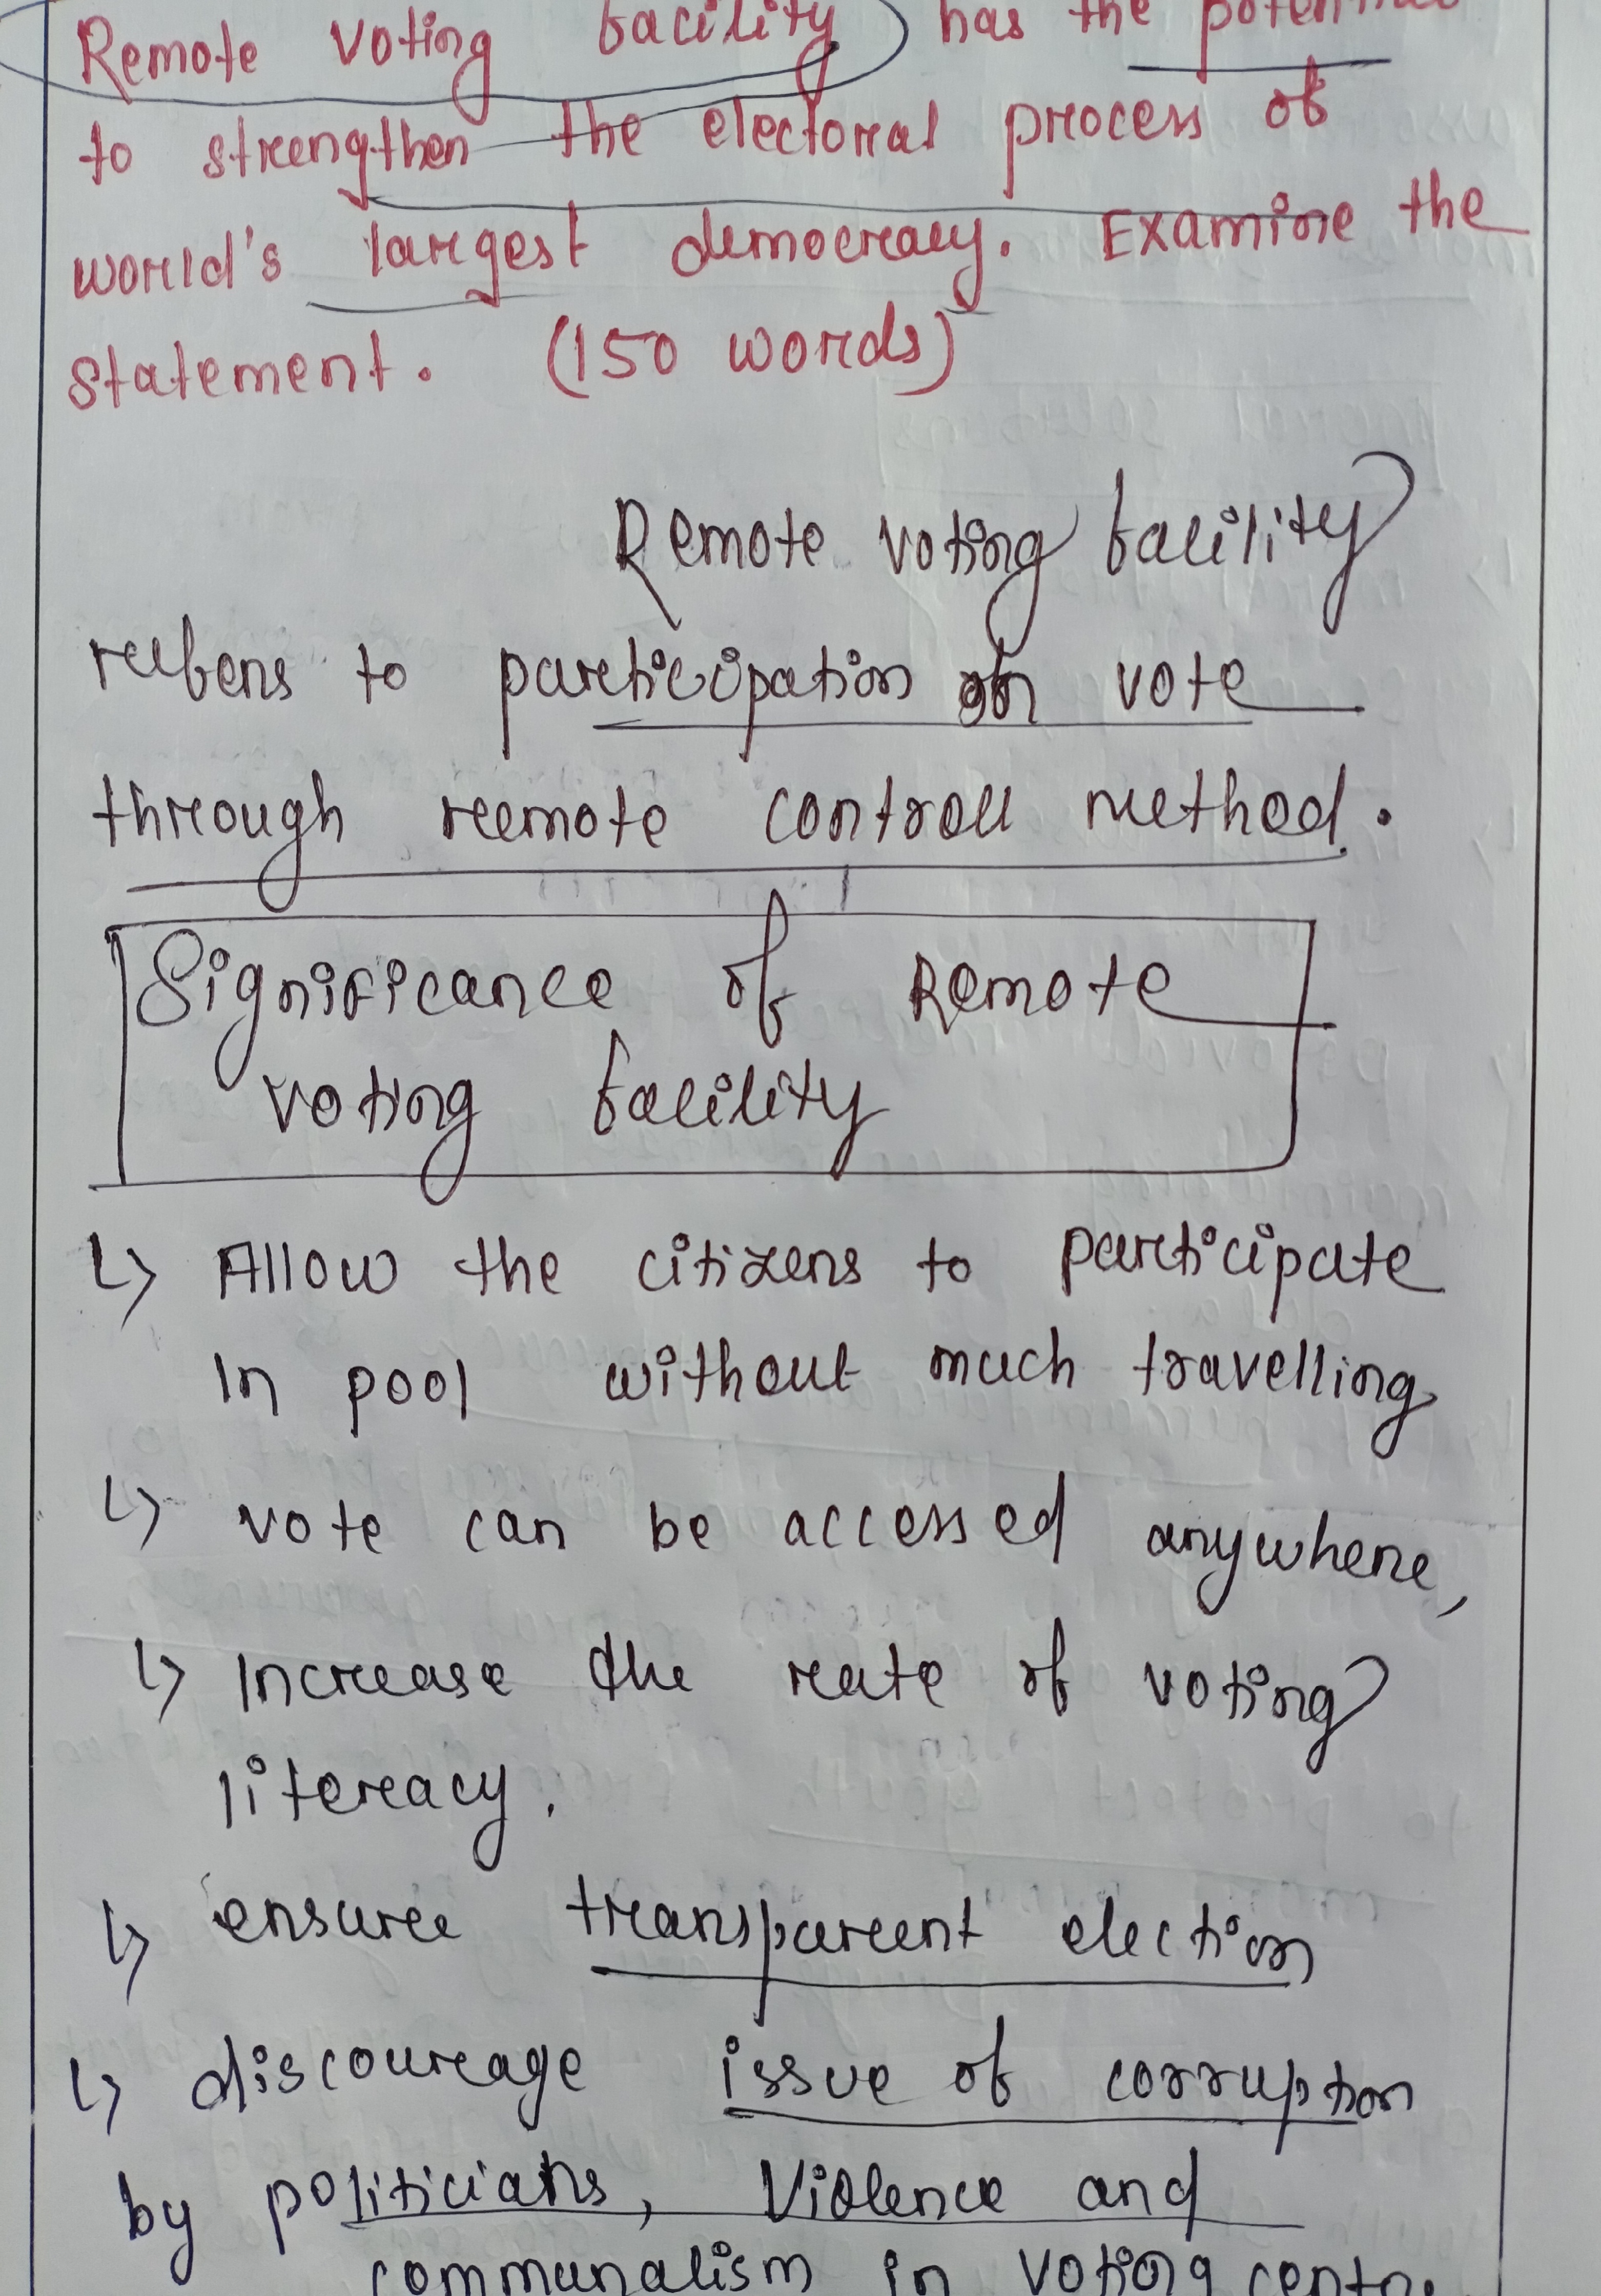 Remote voting facility has the potential
to strengthen the electoral process of
world's largest democracy. Examine the
statement. (150 words)
Remote voting facility
refers to participation in vote
through remote controll method.
Significance of Remote
voting facility
↳ Allow the citizens to participate
in pool without much travelling
↳ vote can be accessed anywhere,
↳ Increase the rate of voting
literacy.
↳ ensure transparent election
↳ discourage issue of corruption
by politicians, Violence and
communalism in voting